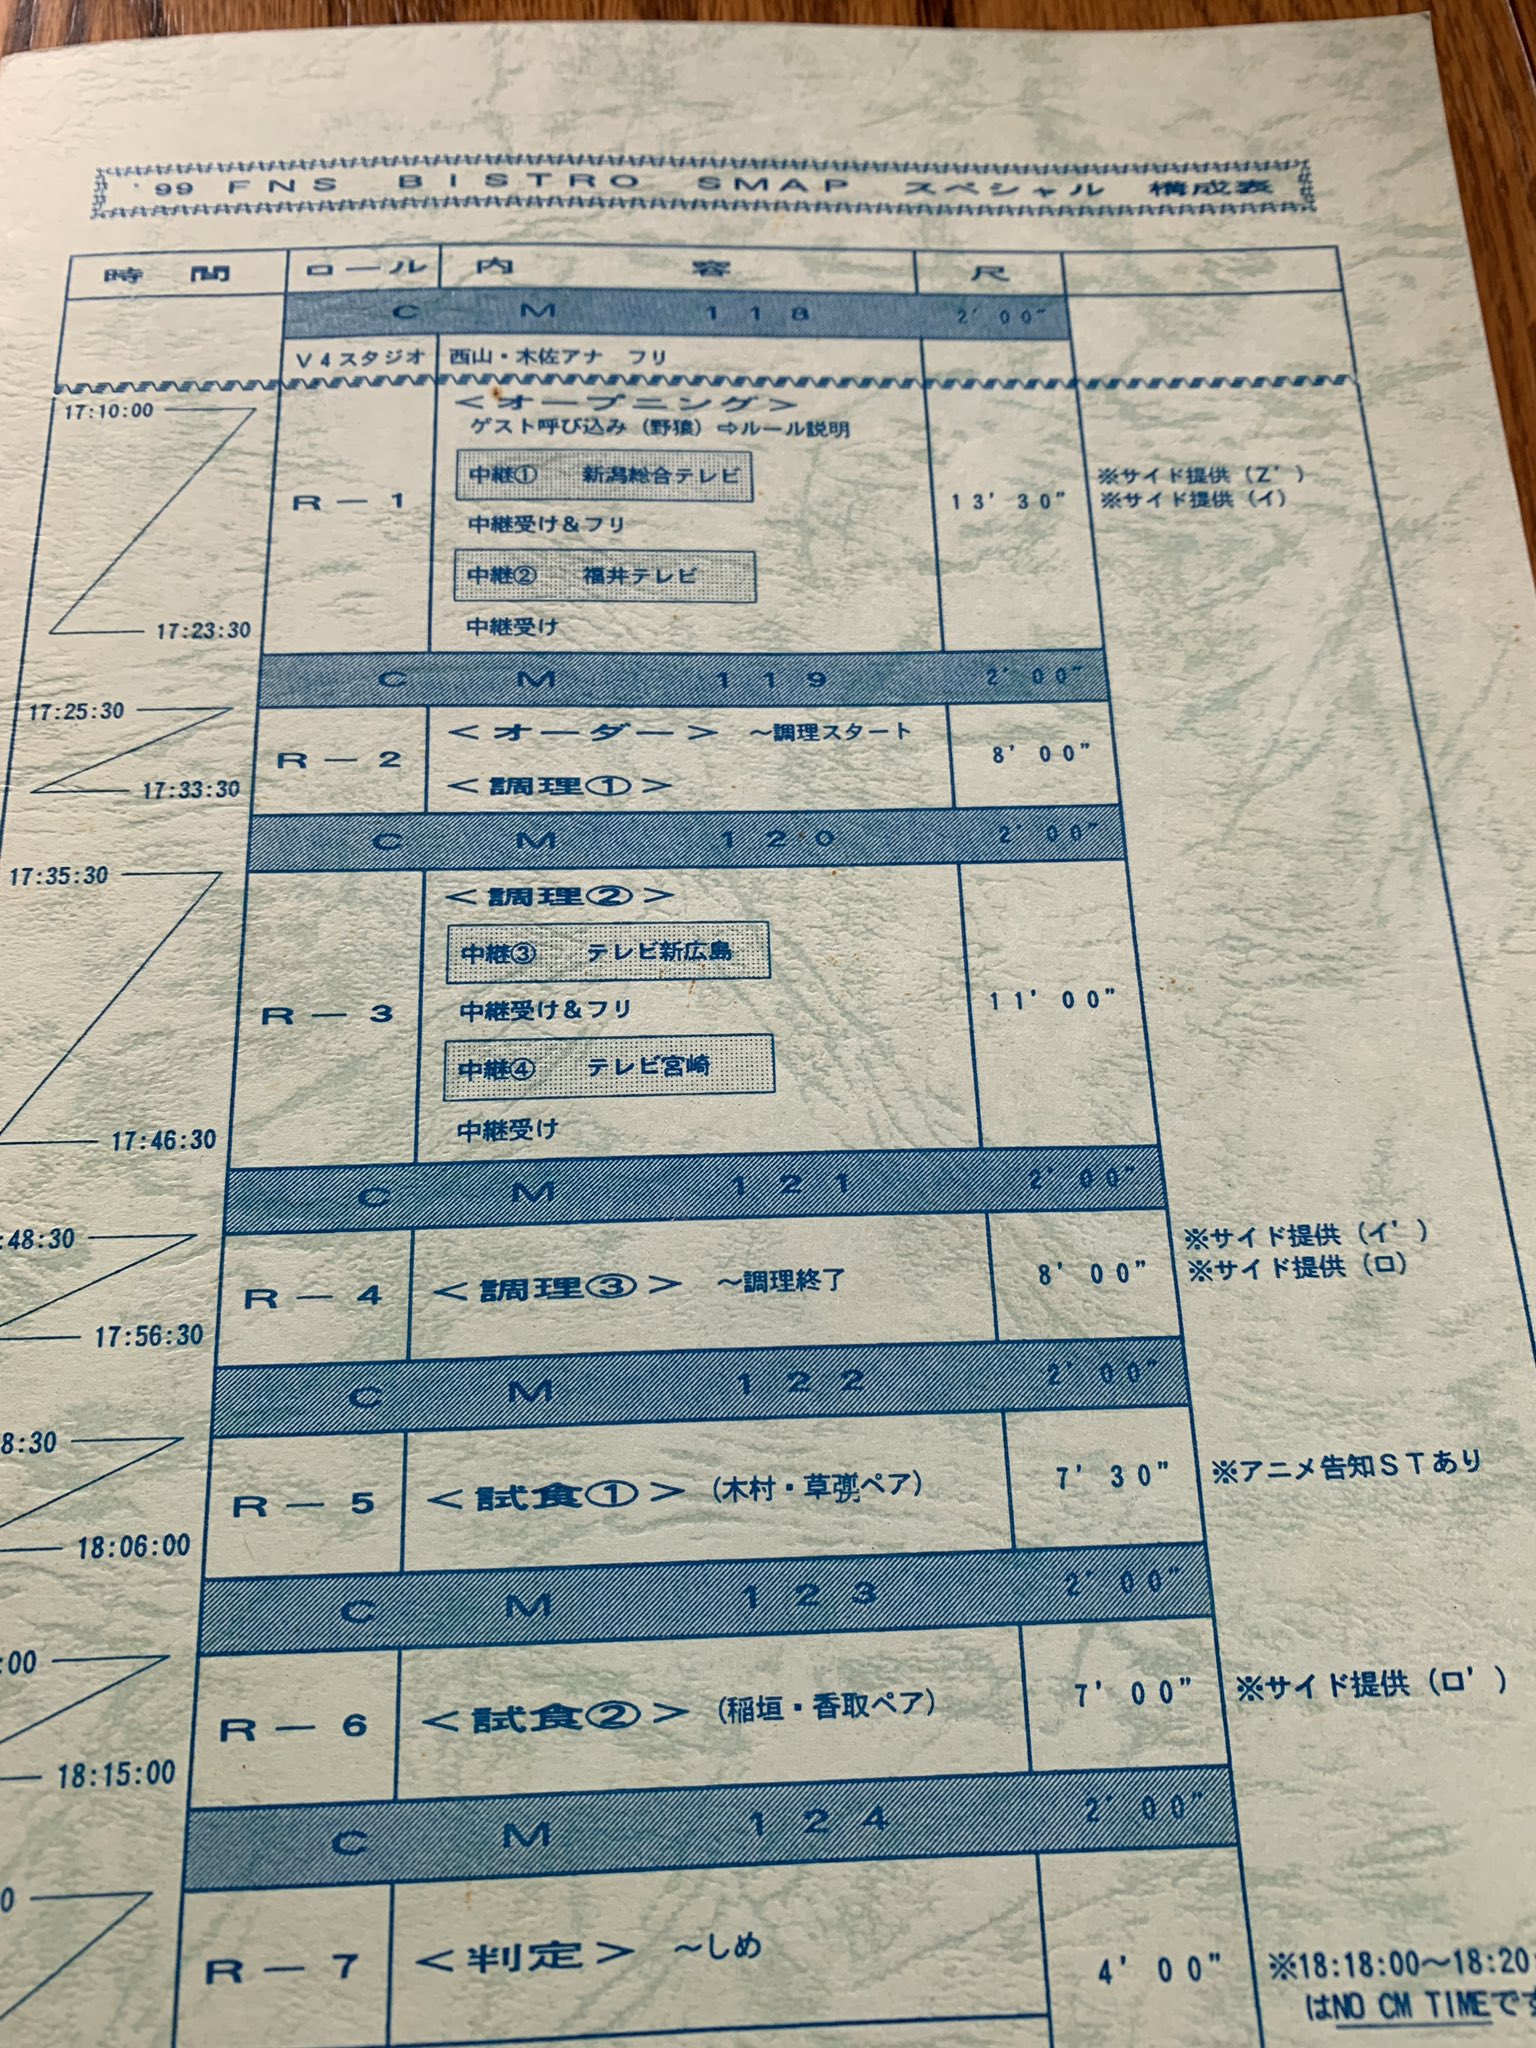 '99 FNS BISTRO SMAP スペシャル 構成表
時間 ロール 内容 尺
CM 118 2'00"
V4スタジオ 西山・木佐アナ フリ
17:10:00
<オープニング>
ゲスト呼び込み(野猿)⇨ルール説明
中継① 新潟総合テレビ
※サイド提供(Z')
R-1 13'30" ※サイド提供(イ)
中継受け&フリ
中継② 福井テレビ
中継受け
17:23:30
CM 119 2'00"
17:25:30
<オーダー> ~調理スタート
R-2 8'00"
<調理①>
17:33:30
CM 120 2'00"
17:35:30
<調理②>
中継③ テレビ新広島
中継受け&フリ
R-3 11'00"
中継④ テレビ宮崎
中継受け
17:46:30
CM 121 2'00"
:48:30
※サイド提供(イ')
R-4 <調理③> ~調理終了 8'00" ※サイド提供(ロ)
17:56:30
CM 122 2'00"
8:30
R-5 <試食①> (木村・草彅ペア) 7'30" ※アニメ告知STあり
18:06:00
CM 123 2'00"
:00
R-6 <試食②> (稲垣・香取ペア) 7'00" ※サイド提供(ロ')
18:15:00
CM 124 2'00"
0
R-7 <判定> ~しめ 4'00" ※18:18:00~18:20
はNO CM TIMEで